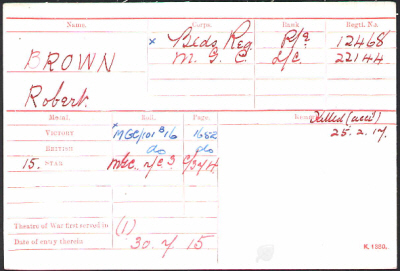 Name. Corps. Rank Regtl. No.
BROWN
Robert.
x Beds Reg Pte 12468
M. G. C. L/C. 22144
Medal. Roll. Page. Remarks
Killed (acci)
25. 2. 17.
VICTORY x MGC/101 B16 1682
BRITISH do do
15. STAR
Theatre of War first served in (1)
Date of entry therein 30. 7 15
K. 1380.